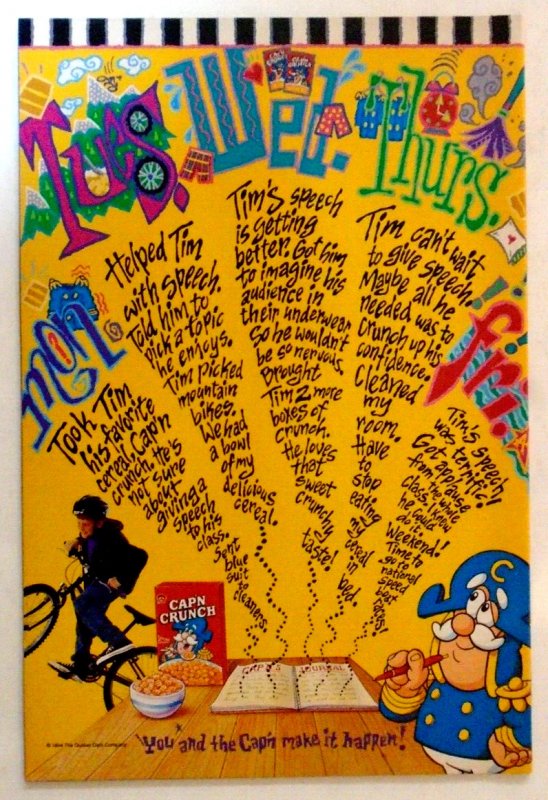 Mon
Took Tim
his favorite
cereal, Cap'n
Crunch. He's
not sure
about
giving a
speech
to his
class.
Sent
blue
suit
to
cleaners.
Tues.
Helped Tim
with speech.
Told him to
pick a topic
he enjoys.
Tim picked
mountain
bikes.
We had
a bowl
of my
delicious
cereal.
Wed.
Tim's speech
is getting
better. Got him
to imagine his
audience in
their underwear
so he wouldn't
be so nervous.
Brought
Tim 2 more
boxes of
Crunch.
He loves
that
sweet
crunchy
taste!
Thurs.
Tim can't wait
to give speech.
Maybe all he
needed was to
Crunch up his
confidence.
Cleaned
my
room.
Have
to
stop
eating
my
cereal
in
bed.
fri.
Tim's speech
was terrific!
Got applause
from the whole
class. I knew
he could
do it.
Weekend!
Time to
go to
national
speed
boat
races!
CAP'N
CRUNCH
CAP'N'S JOURNAL
You and the Cap'n make it happen!
© 1994 The Quaker Oats Company